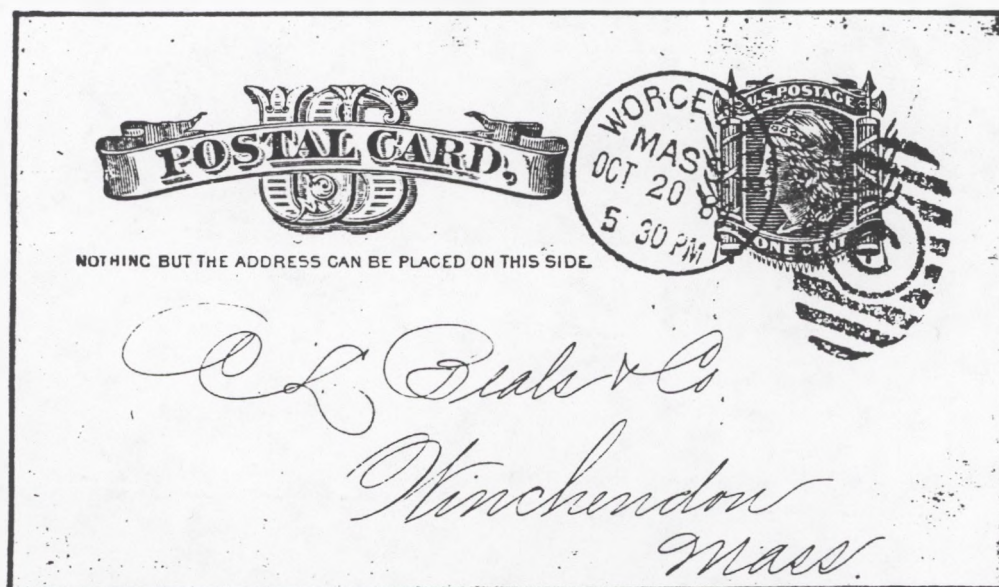 US
POSTAL CARD,
NOTHING BUT THE ADDRESS CAN BE PLACED ON THIS SIDE.
WORCE
MASS
OCT 20
5 30 PM
U.S. POSTAGE
ONE CENT
C L Beals & Co
Winchendon
Mass